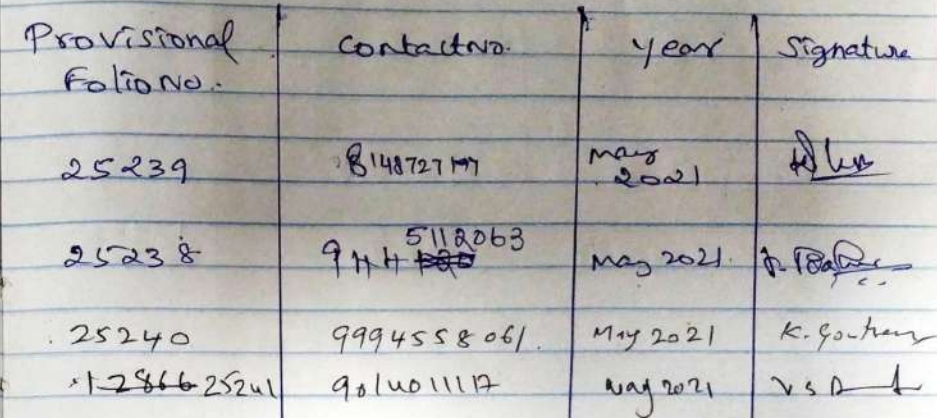 Provisional Folio No. Contact No. year Signature
25239 8148727197 may 2021
25238 944 5112063 may 2021.
25240 9994558061. May 2021 K. Goutham
12866 25241 9014011117 may 2021 V S